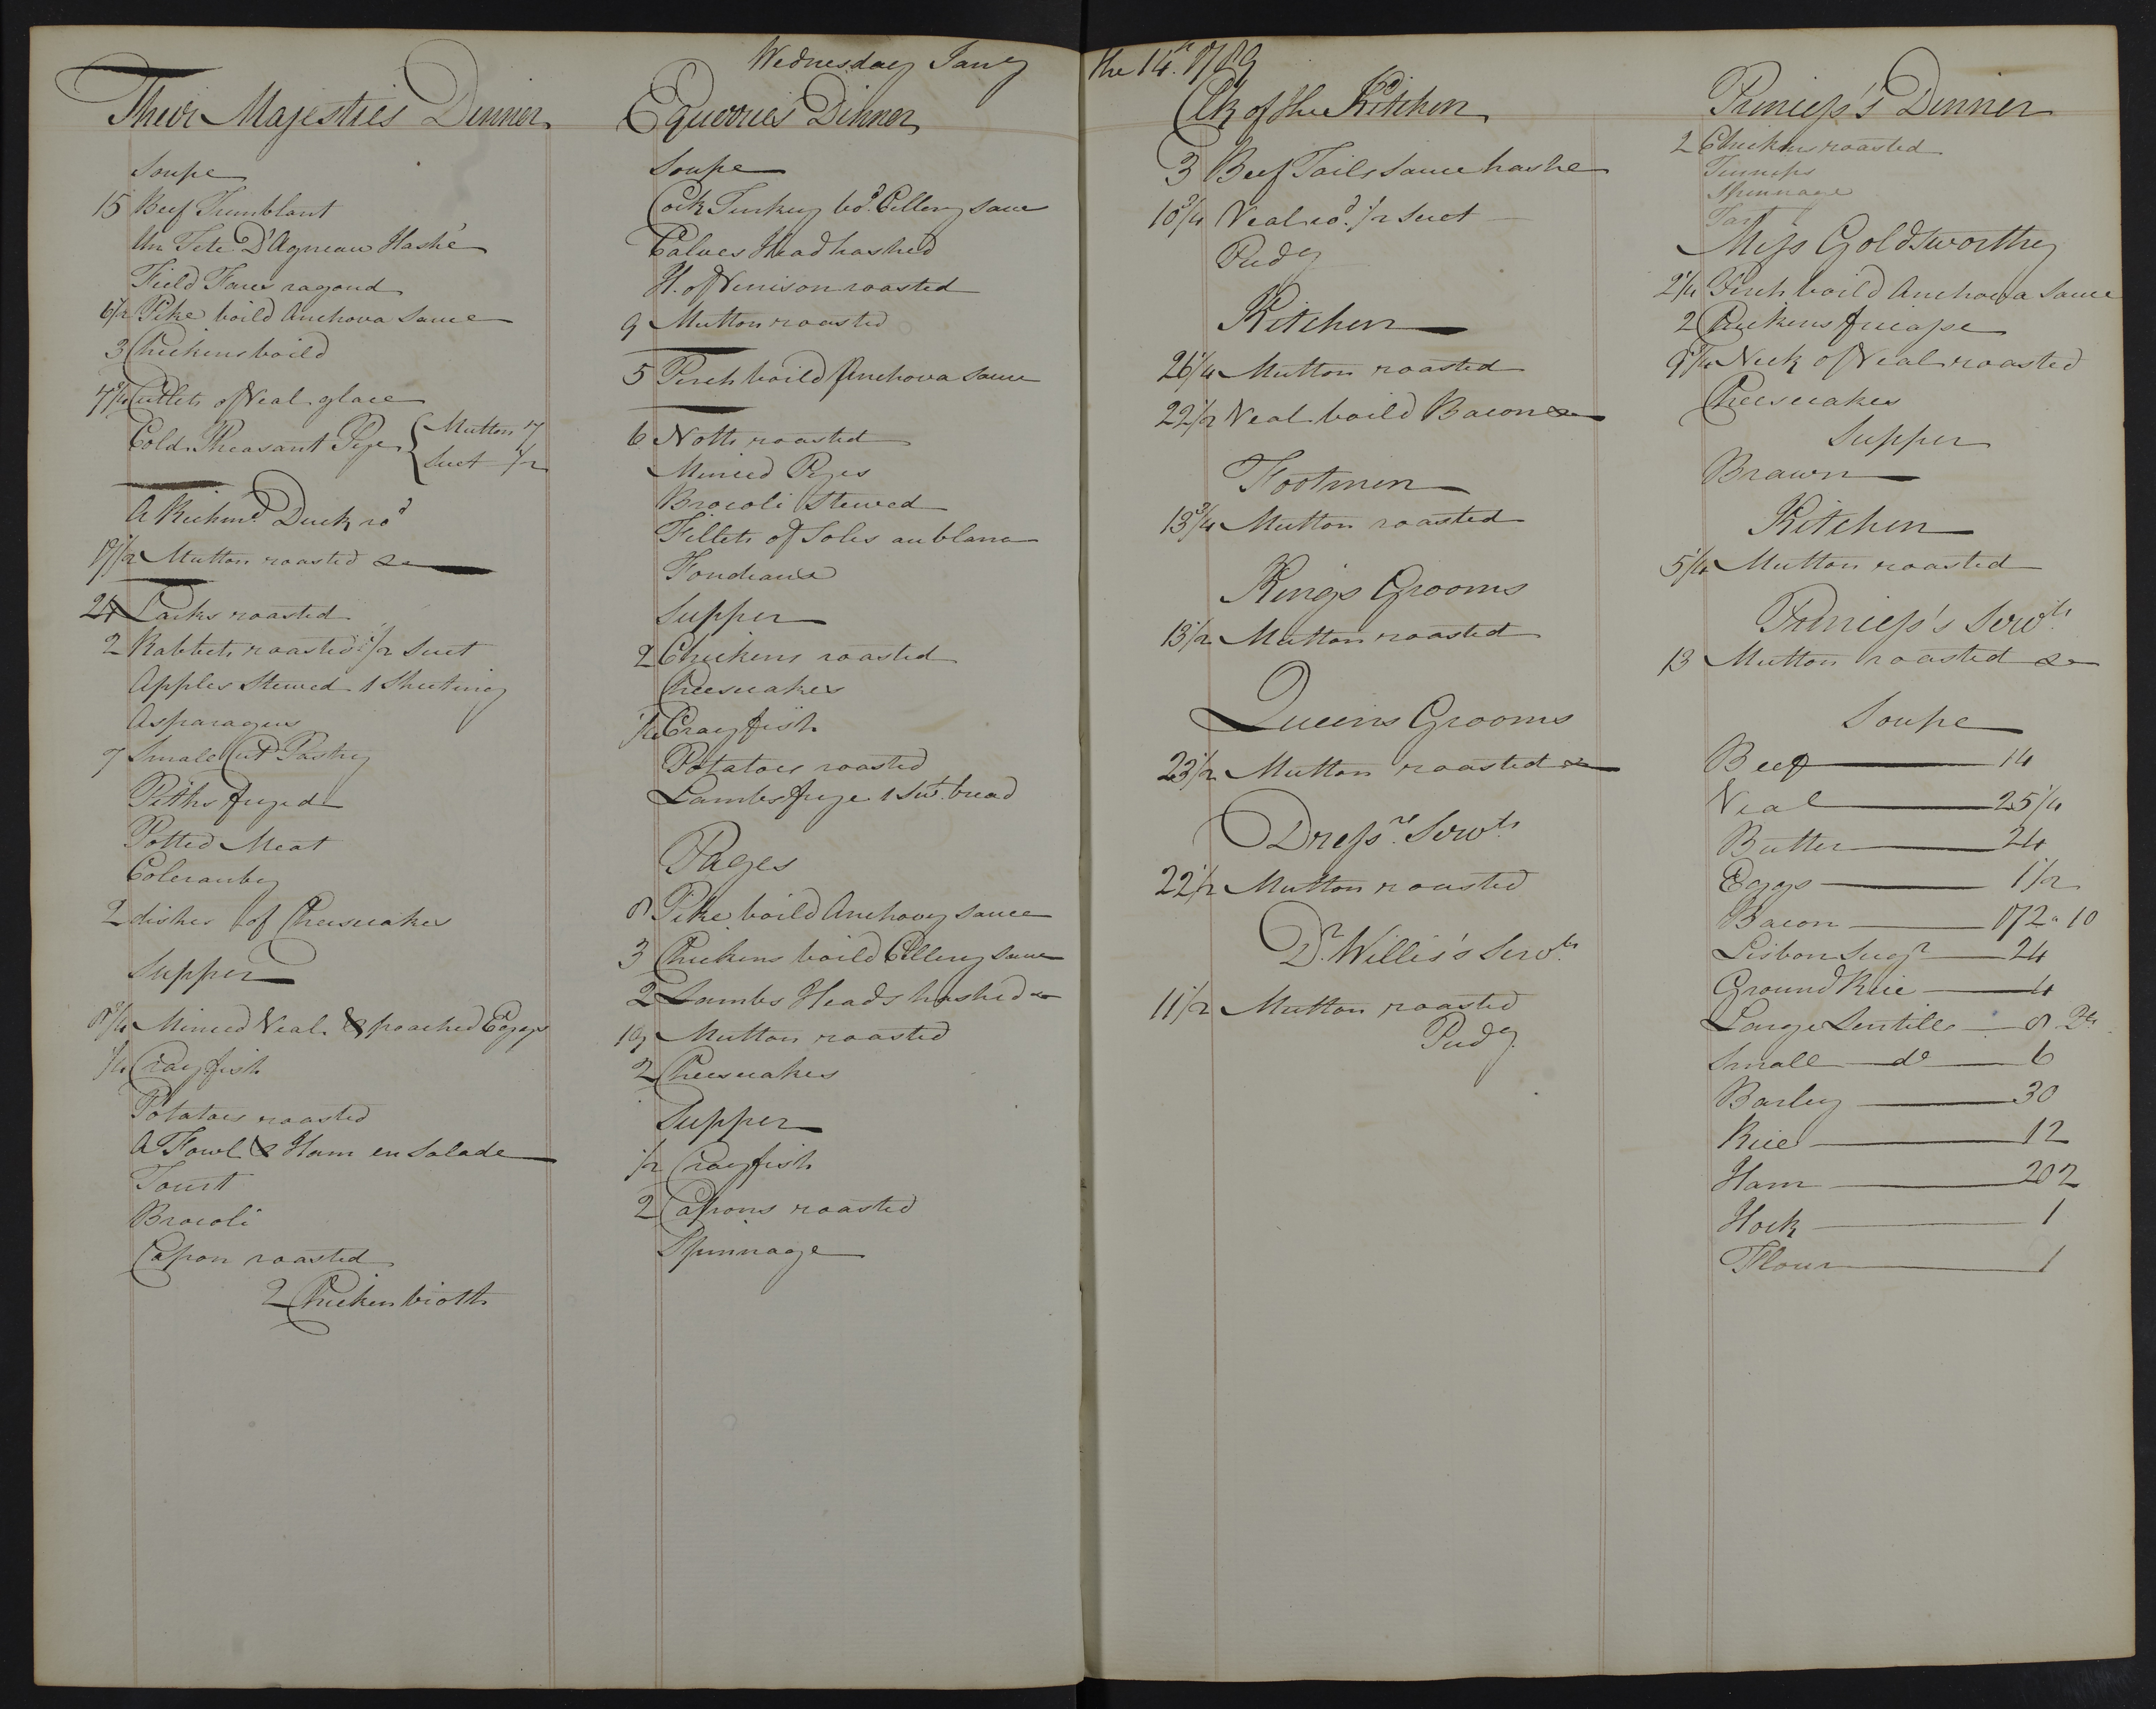 Wednesday Jany the 14th 1789
Their Majesties Dinner
Soupe
15 Beef Tremblant
Un Tete D'Agneau Hashé
Field Fares ragoud
6 1/2 Pike boild Anchova Sauce
3 Chickens boild
7 3/4 Cutlets of Veal glace
Cold Pheasant Pye { Mutton 7
Suet 1/2
A Richmd. Duck rod
17 1/2 Mutton roasted &c
24 Larks roasted
2 Rabbets roasted 1/2 Suet
Apples Stewed 1 Sheeting
Asparagus
7 Small Cut Pastry
Piths fryed
Potted Meat
2 dishes of Cheescakes
Supper
8 3/4 Minced Veal & poached Eggs
1/4 Crayfish
Potatoes roasted
A Fowl & Ham en Salade
Tourt
Brocoli
Capon roasted
2 Chicken broth
Equerries Dinner
Soupe
Cock Turkey bd. Cellery Sauce
Calves Head hashed
H. of Venison roasted
9 Mutton roasted
5 Perch boild Anchova Sauce
6 Notts roasted
Minced Pyes
Brocoli Stewed
Fillets of Soles au blanc
Fondeaus
Supper
2 Chickens roasted
Cheescakes
1/4 Crayfish
Potatoes roasted
Lambs frye 1 Swt. bread
Pages
8 Pike boild Anchovy Sauce
3 Chickens boild Cellery Sauce
2 Lambs Heads hashed &c
19 Mutton roasted
2 Cheescakes
Supper
1/2 Crayfish
2 Capons roasted
Spinnage
Clk of the Kitchen
3 Beef Tails Sauce hashe
10 3/4 Veal rod. 1/2 Suet
Pudg
Kitchen
26 1/4 Mutton roasted
22 1/2 Veal boild Bacon &c
Footmen
13 3/4 Mutton roasted
Kings Grooms
13 1/2 Mutton roasted
Queens Grooms
23 1/2 Mutton roasted &c
Dressrs. Servts
22 1/2 Mutton roasted
Dr. Willis's Servts
11 1/2 Mutton roasted
Pudg
Princess's Dinner
2 Chickens roasted
Turnips
Spinnage
Tart
Miss Goldsworthy
2 1/4 Perch boild Anchova Sauce
2 Chickens fricasse
9 3/4 Neck of Veal roasted
Cheescakes
Supper
Brawn
Kitchen
5 1/4 Mutton roasted
Princess's Servts
13 Mutton roasted &c
Soupe
Beef 14
Veal 25 1/4
Butter 24
Eggs 1 1/2
Bacon 172 " 10
Lisbon Sugr 24
Ground Rice 4
Large Lentills 8 Pts
Small do 6
Barley 30
Rice 12
Ham 202
Hock 1
Flour 1